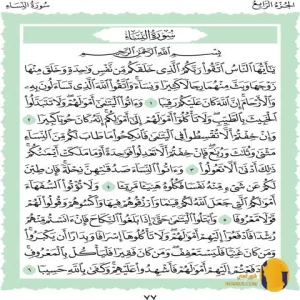 الجزء الرابع
سورة النساء
سُورَةُ النِّسَاءِ
بِسْمِ ٱللَّهِ ٱلرَّحْمَٰنِ ٱلرَّحِيمِ
يَٰٓأَيُّهَا ٱلنَّاسُ ٱتَّقُوا۟ رَبَّكُمُ ٱلَّذِى خَلَقَكُم مِّن نَّفْسٍ وَٰحِدَةٍ وَخَلَقَ مِنْهَا
زَوْجَهَا وَبَثَّ مِنْهُمَا رِجَالًا كَثِيرًا وَنِسَآءً وَٱتَّقُوا۟ ٱللَّهَ ٱلَّذِى تَسَآءَلُونَ بِهِۦ
وَٱلْأَرْحَامَ إِنَّ ٱللَّهَ كَانَ عَلَيْكُمْ رَقِيبًا ١ وَءَاتُوا۟ ٱلْيَتَٰمَىٰٓ أَمْوَٰلَهُمْ وَلَا تَتَبَدَّلُوا۟
ٱلْخَبِيثَ بِٱلطَّيِّبِ وَلَا تَأْكُلُوٓا۟ أَمْوَٰلَهُمْ إِلَىٰٓ أَمْوَٰلِكُمْ إِنَّهُۥ كَانَ حُوبًا كَبِيرًا ٢
وَإِنْ خِفْتُمْ أَلَّا تُقْسِطُوا۟ فِى ٱلْيَتَٰمَىٰ فَٱنكِحُوا۟ مَا طَابَ لَكُم مِّنَ ٱلنِّسَآءِ
مَثْنَىٰ وَثُلَٰثَ وَرُبَٰعَ فَإِنْ خِفْتُمْ أَلَّا تَعْدِلُوا۟ فَوَٰحِدَةً أَوْ مَا مَلَكَتْ أَيْمَٰنُكُمْ
ذَٰلِكَ أَدْنَىٰٓ أَلَّا تَعُولُوا۟ ٣ وَءَاتُوا۟ ٱلنِّسَآءَ صَدُقَٰتِهِنَّ نِحْلَةً فَإِن طِبْنَ
لَكُمْ عَن شَىْءٍ مِّنْهُ نَفْسًا فَكُلُوهُ هَنِيٓـًٔا مَّرِيٓـًٔا ٤ وَلَا تُؤْتُوا۟ ٱلسُّفَهَآءَ
أَمْوَٰلَكُمُ ٱلَّتِى جَعَلَ ٱللَّهُ لَكُمْ قِيَٰمًا وَٱرْزُقُوهُمْ فِيهَا وَٱكْسُوهُمْ وَقُولُوا۟ لَهُمْ
قَوْلًا مَّعْرُوفًا ٥ وَٱبْتَلُوا۟ ٱلْيَتَٰمَىٰ حَتَّىٰٓ إِذَا بَلَغُوا۟ ٱلنِّكَاحَ فَإِنْ ءَانَسْتُم مِّنْهُمْ
رُشْدًا فَٱدْفَعُوٓا۟ إِلَيْهِمْ أَمْوَٰلَهُمْ وَلَا تَأْكُلُوهَآ إِسْرَافًا وَبِدَارًا أَن يَكْبَرُوا۟
وَمَن كَانَ غَنِيًّا فَلْيَسْتَعْفِفْ وَمَن كَانَ فَقِيرًا فَلْيَأْكُلْ بِٱلْمَعْرُوفِ فَإِذَا
دَفَعْتُمْ إِلَيْهِمْ أَمْوَٰلَهُمْ فَأَشْهِدُوا۟ عَلَيْهِمْ وَكَفَىٰ بِٱللَّهِ حَسِيبًا ٦
٧٧